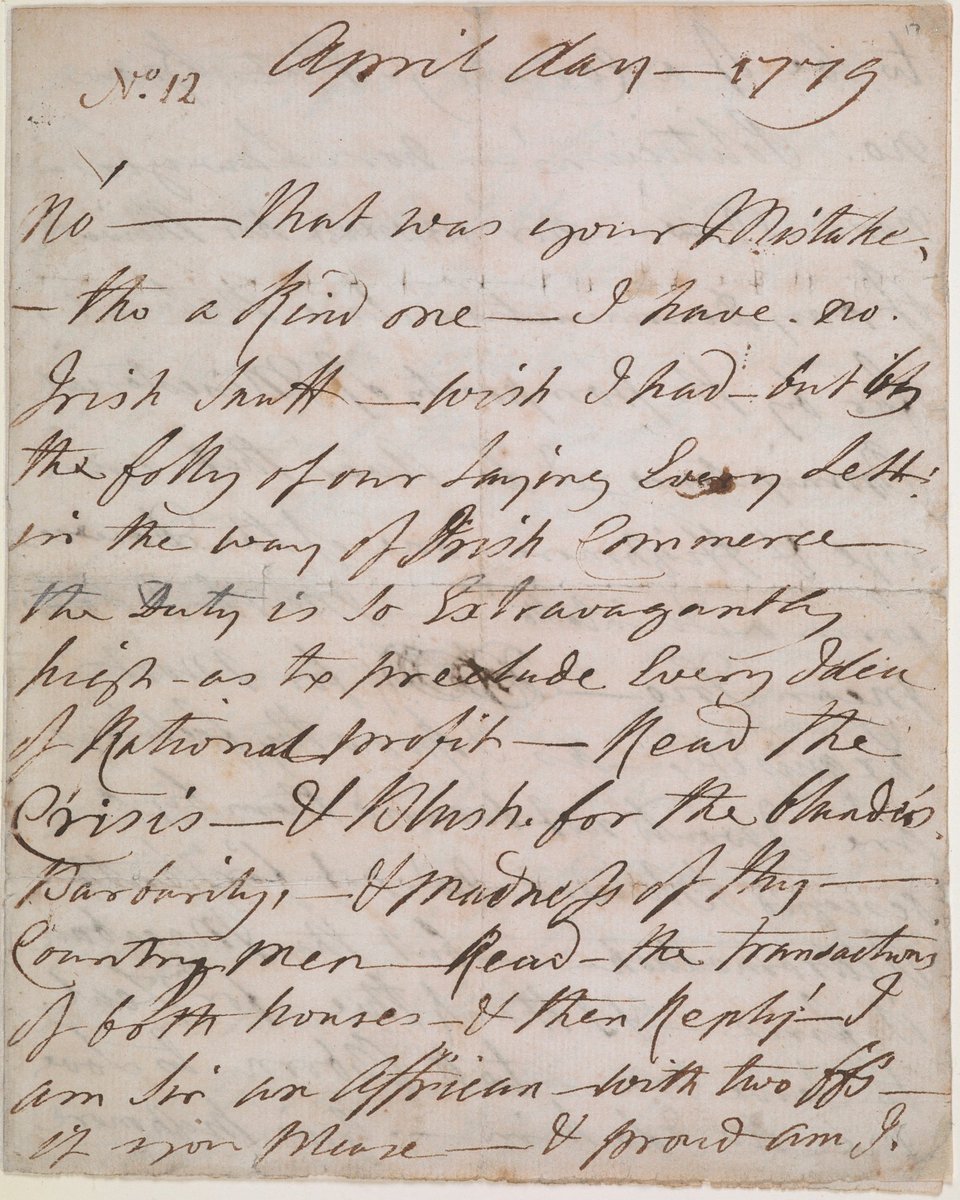 April day — 1779
No. 12
No — that was your Mistake,
— tho a Kind one — I have. no.
Irish Snuff — wish I had — but by
the folly of our Laying Every Lett:
in the way of Irish Commerce —
the Duty is so Extravagantly
high — as to preclude Every Idea
of Rational profit — Read the
Crisis — & Blush. for the
Barbarity, — & madness of thy —
Country Men — Read — the transactions
of both houses — & then Reply — I
am Sir an Affrican — with two ffs —
if you Please — & proud am I.